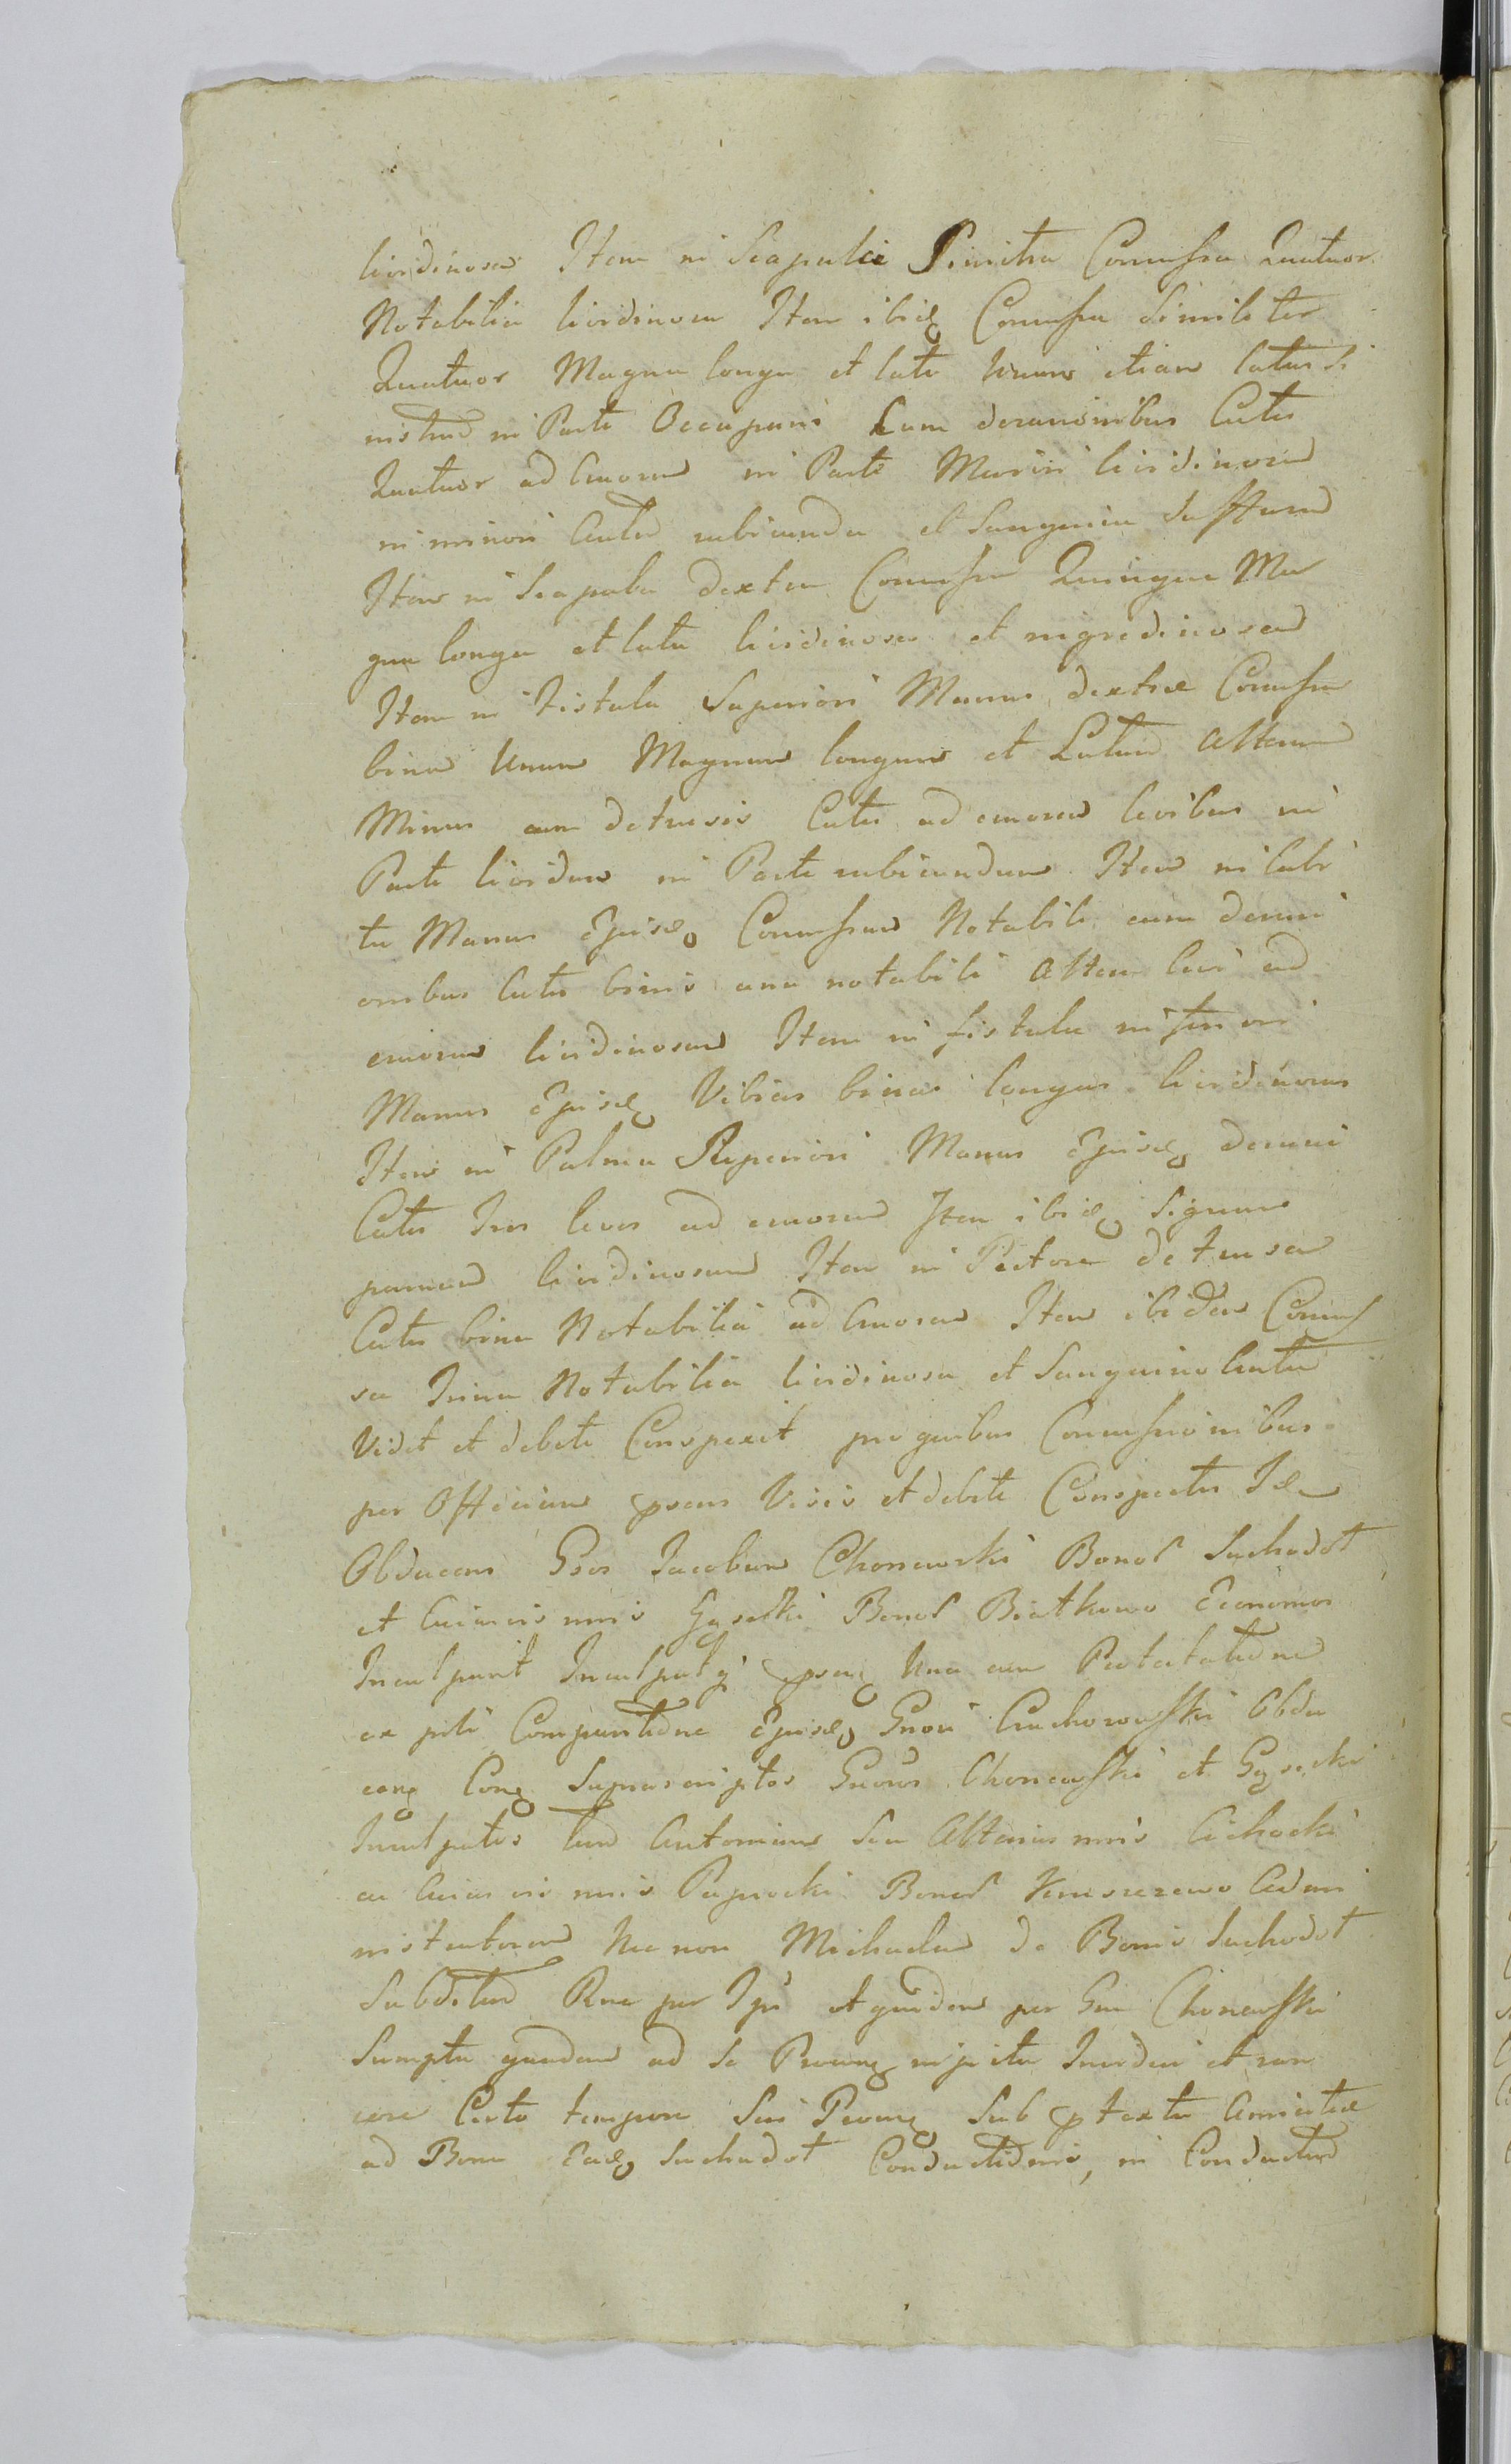 lividinosa Item in Scapula Sinistra Concussa Quatuor
Notabilia lividinosa Item ibid Concussa Similiter
Quatuor Magna longa et lata Unum etiam latus Si
nistrum in Parte Occupans Cum derasionibus Cutis
Quatuor ad Cruorem in Parte Maiori lividinosum
in minori Cutem rubicunda et Sanguine Suffusum
Item in Scapula dextra Concussa Quinque Ma
gna longa et lata lividinosa et nigredinosa
Item in Fistula Superiori Manus dextræ Concussa
bina Unum Magnum longum et Latum Alterum
Minus cum detrusis Cutis ad cruorem levibus in
Parte lividum in Parte rubicundum Item in Cubi
tu Manus Ejusd Concussum Notabile cum derasi
onibus Cutis binis una notabili Altera levi ad
cruorem lividinosum Item in fistula inferiori
Manus Ejusd Vibias binas longas lividinosas
Item in Palma Superiori Manus Ejusd derasi
Cutis tres leves ad cruorem Item ibid Signum
parvum lividinosum Item in Pectore detrusa
Cutis bina Notabilia ad Cruorem Item ibidem Concus
sa Trina Notabilia lividinosa et Sanguinolenta
Vidit et debite Conspexit pro quibus Concussionibus
per Officium præns Visis et debite Conspectis Idem
Obducens Gsos Jacobum Chonewski Bonor Suchodot
et Cuiusvis nnis Gąsecki Bonor Białkowo Economos
Inculpavit Una cum Protestatione
ex Comparitione Ejusd Gnosi Obdu
Suprascriptos Gnosos Chonewski et Gąsecki
Inculpatos tum Antonium Seu Alterius nnis Cichocki
ac Cuiusvis nnis Paprocki Bonor Admi
nistratorem Nec non Michaelem de Bonis Suchodot
Subditum per et quidem per Gnm Chonewski
Sumpta quadam ad Se in et ran
core Certo tempore Sui Sub prtextu Amicitiæ
ad Bona Ead Suchodot Conductionis, in Conductum